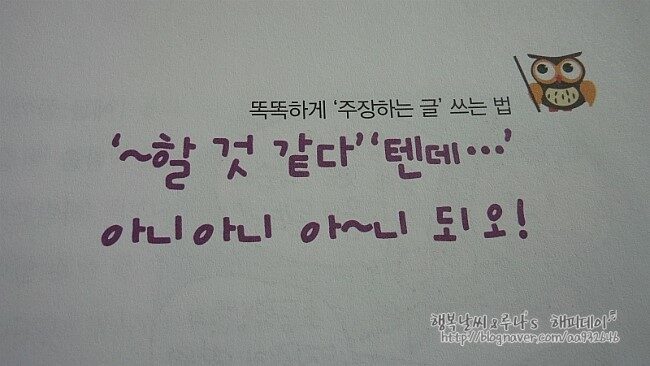 똑똑하게 '주장하는 글' 쓰는 법
'~할 것 같다' '텐데…'
아니아니 아~니 되오!
행복날씨&루나's 해피데이♬
http://blog.naver.com/aa932646